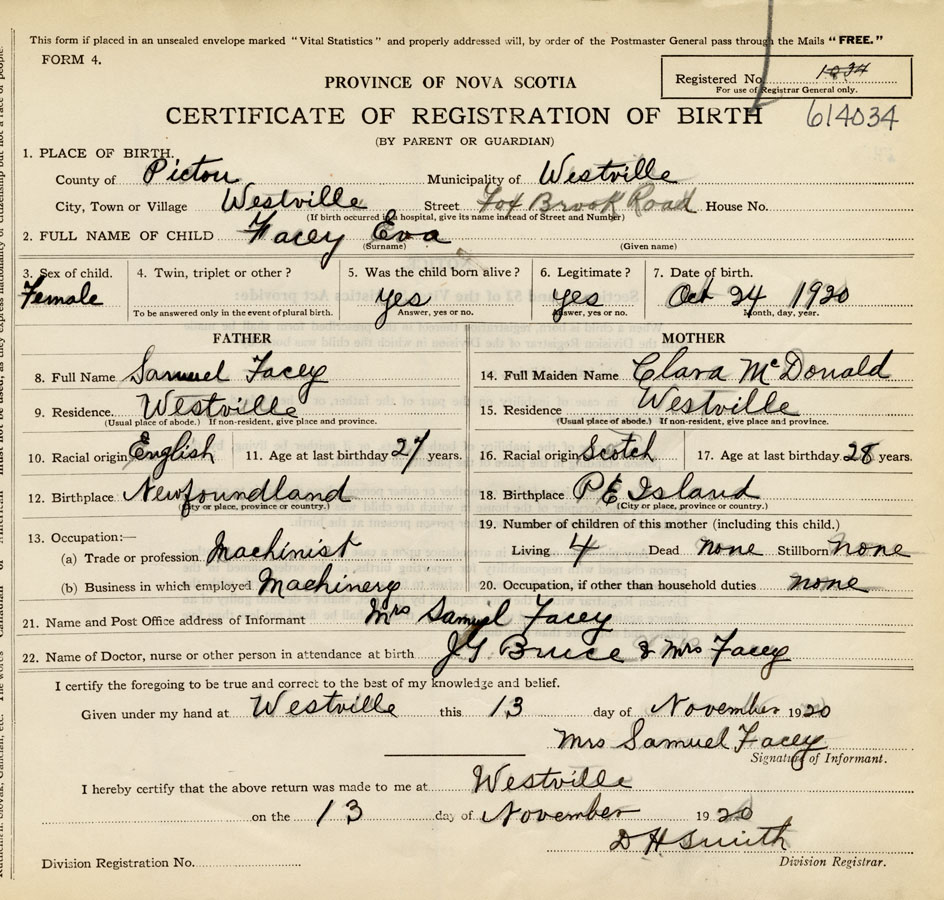 This form if placed in an unsealed envelope marked "Vital Statistics" and properly addressed will, by order of the Postmaster General pass through the Mails "FREE."
FORM 4.
Registered No. 1034
For use of Registrar General only.
PROVINCE OF NOVA SCOTIA
CERTIFICATE OF REGISTRATION OF BIRTH 614034
(BY PARENT OR GUARDIAN)
1. PLACE OF BIRTH.
County of Pictou Municipality of Westville
City, Town or Village Westville Street Fox Brook Road House No.
(If birth occurred in hospital, give its name instead of Street and Number)
2. FULL NAME OF CHILD Facey Eva
(Surname) (Given name)
3. Sex of child. 4. Twin, triplet or other? 5. Was the child born alive? 6. Legitimate? 7. Date of birth.
Female yes yes Oct 24 1920
To be answered only in the event of plural birth. Answer, yes or no. Answer, yes or no. Month, day, year.
FATHER MOTHER
8. Full Name Samuel Facey 14. Full Maiden Name Clara McDonald
9. Residence Westville 15. Residence Westville
(Usual place of abode.) If non-resident, give place and province. (Usual place of abode.) If non-resident, give place and province.
10. Racial origin English 11. Age at last birthday 27 years. 16. Racial origin Scotch 17. Age at last birthday 28 years.
12. Birthplace Newfoundland 18. Birthplace P E Island
(City or place, province or country.) (City or place, province or country.)
19. Number of children of this mother (including this child.)
13. Occupation:—
(a) Trade or profession Machinist Living 4 Dead none Stillborn none
(b) Business in which employed Machinery 20. Occupation, if other than household duties none
21. Name and Post Office address of Informant Mrs Samuel Facey
22. Name of Doctor, nurse or other person in attendance at birth J G Bruce & Mrs Facey
I certify the foregoing to be true and correct to the best of my knowledge and belief.
Given under my hand at Westville this 13 day of November 1920
Mrs Samuel Facey
Signature of Informant.
I hereby certify that the above return was made to me at Westville
on the 13 day of November 1920
D H Smith
Division Registration No. Division Registrar.